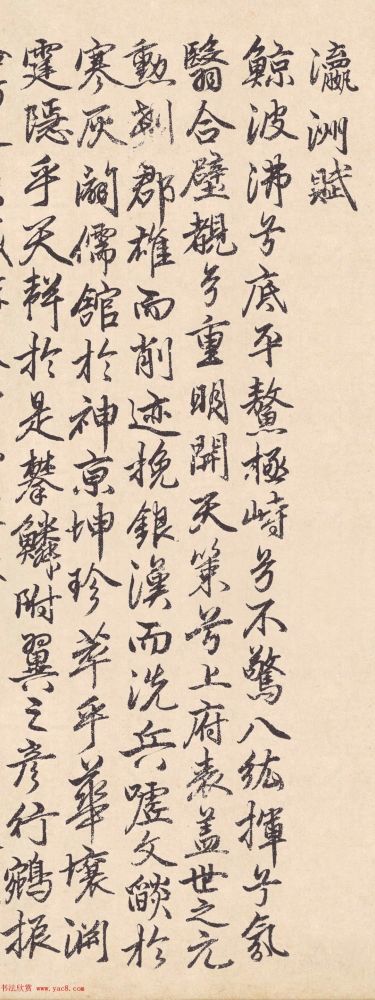 瀛洲賦
鯨波沸兮底平鰲極峙兮不驚八紘揮兮氛
翳合璧覩兮重明開天策兮上府表蓋世之元
勳剗郡雄而削迹挽銀漢而洗兵噓文燄於
寒灰闢儒館於神京坤珍萃乎華壤淵
霆隱乎天耕於是攀鱗附翼之彥行鵷振
书法欣赏 www.yac8.com